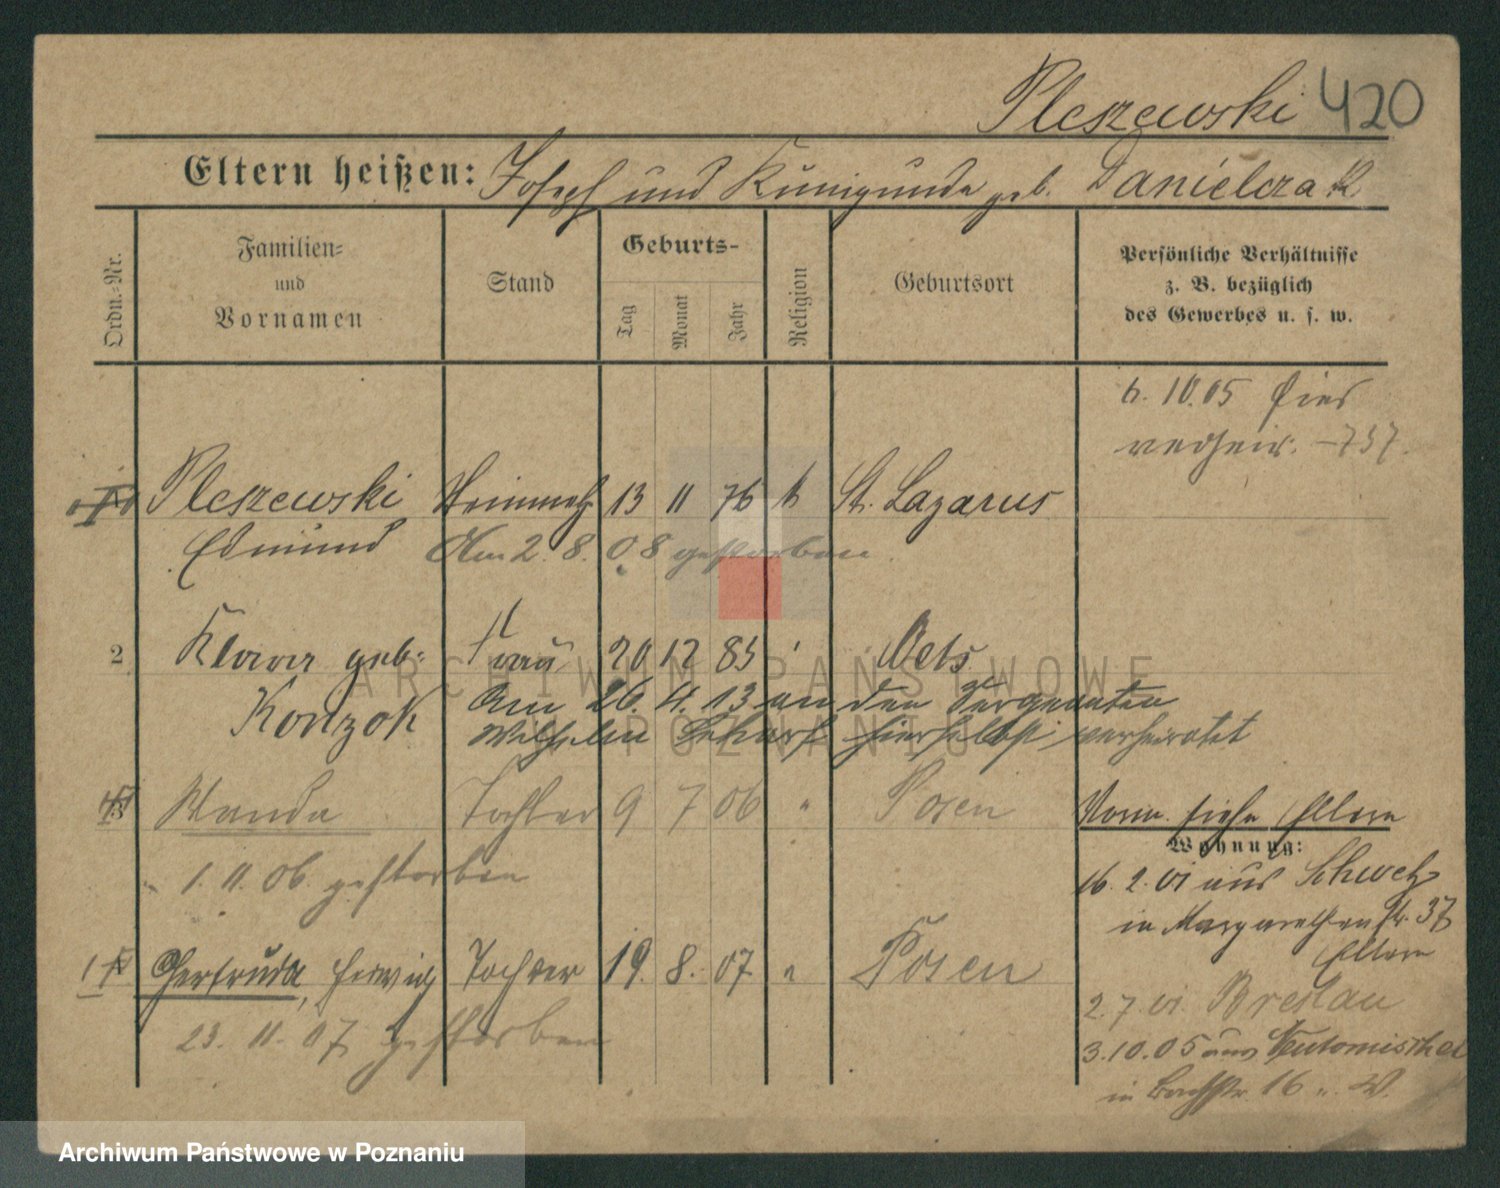 Pleszewski 420
Eltern heißen: Joseph und Kunigunde geb. Danielczak
Ordn.-Nr.
Familien-
und
Vornamen
Stand
Geburts-
Tag
Monat
Jahr
Religion
Geburtsort
Persönliche Verhältnisse
z. B. bezüglich
des Gewerbes u. s. w.
6. 10.05 hier
verheir. 737.
Pleszewski 13 11 76 k St. Lazarus
Edmund Am 2. 8. 08 gestorben
2 geb. Frau 20 12 85 Oels
Am 26. 4. 13 an den Sergeanten
Wilhelm hierselbst verheiratet
Wanda Tochter 9 7 06 " Posen
1. 11. 06. gestorben
Vorm. siehe Eltern
Wohnung:
16. 2. 01 aus Schwetz
in Margarethenstr. 37
Eltern
Gertruda, Hedwig Tochter 19. 8. 07 " Posen
23. 11. 07 gestorben
2. 7. 01. Breslau
3. 10. 05 aus Neutomischel
in Bachstr. 16 b. W.
ARCHIWUM PAŃSTWOWE
W POZNANIU
Archiwum Państwowe w Poznaniu